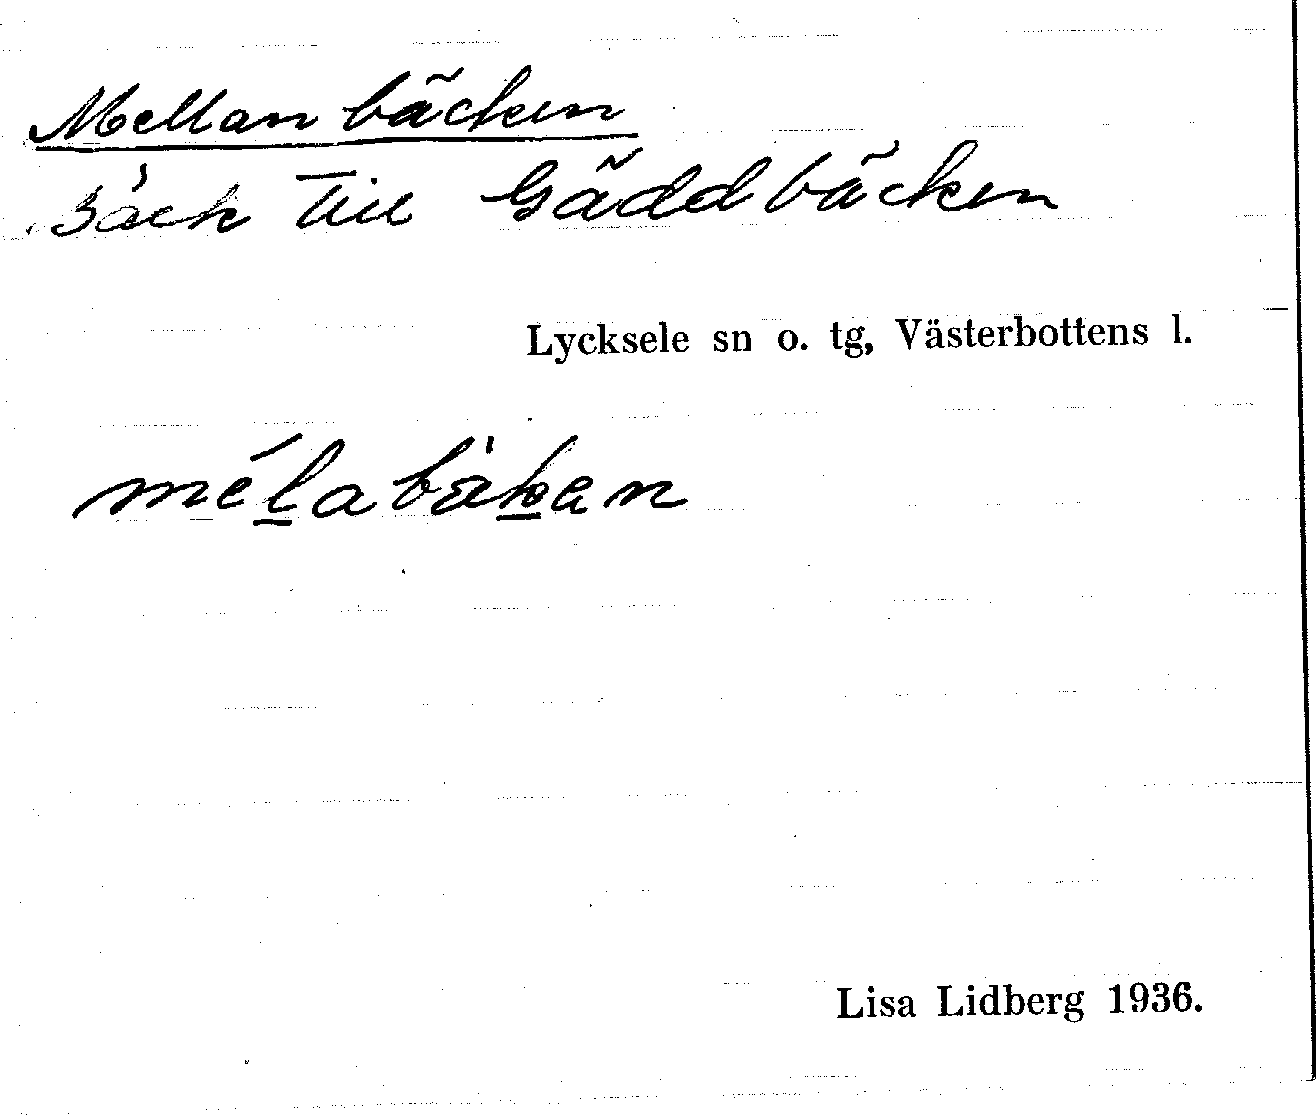 Mellanbäcken
Bäck till Gäddbäcken
Lycksele sn o. tg, Västerbottens l.
mélabä̀kan
Lisa Lidberg 1936.